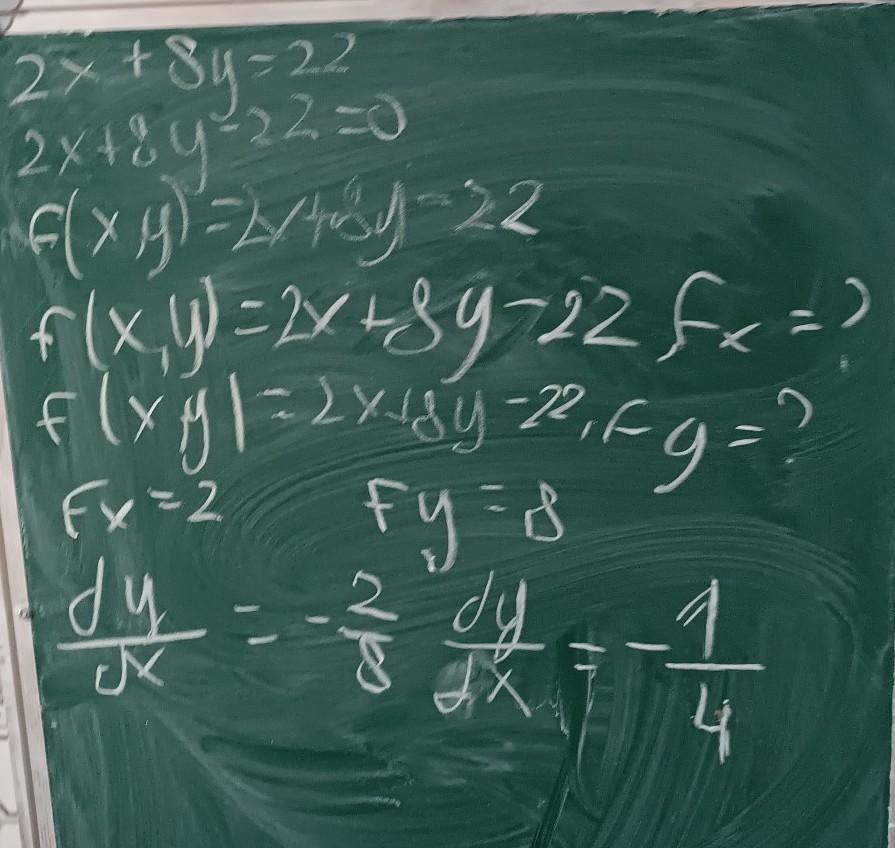 2x + 8y = 22
2x + 8y - 22 = 0
F(x,y) = 2x + 8y - 22
F(x,y) = 2x + 8y - 22 Fx = ?
F(x y) = 2x + 8y - 22, Fy = ?
Fx = 2 Fy = 8
dy/dx = -2/8 dy/dx = -1/4